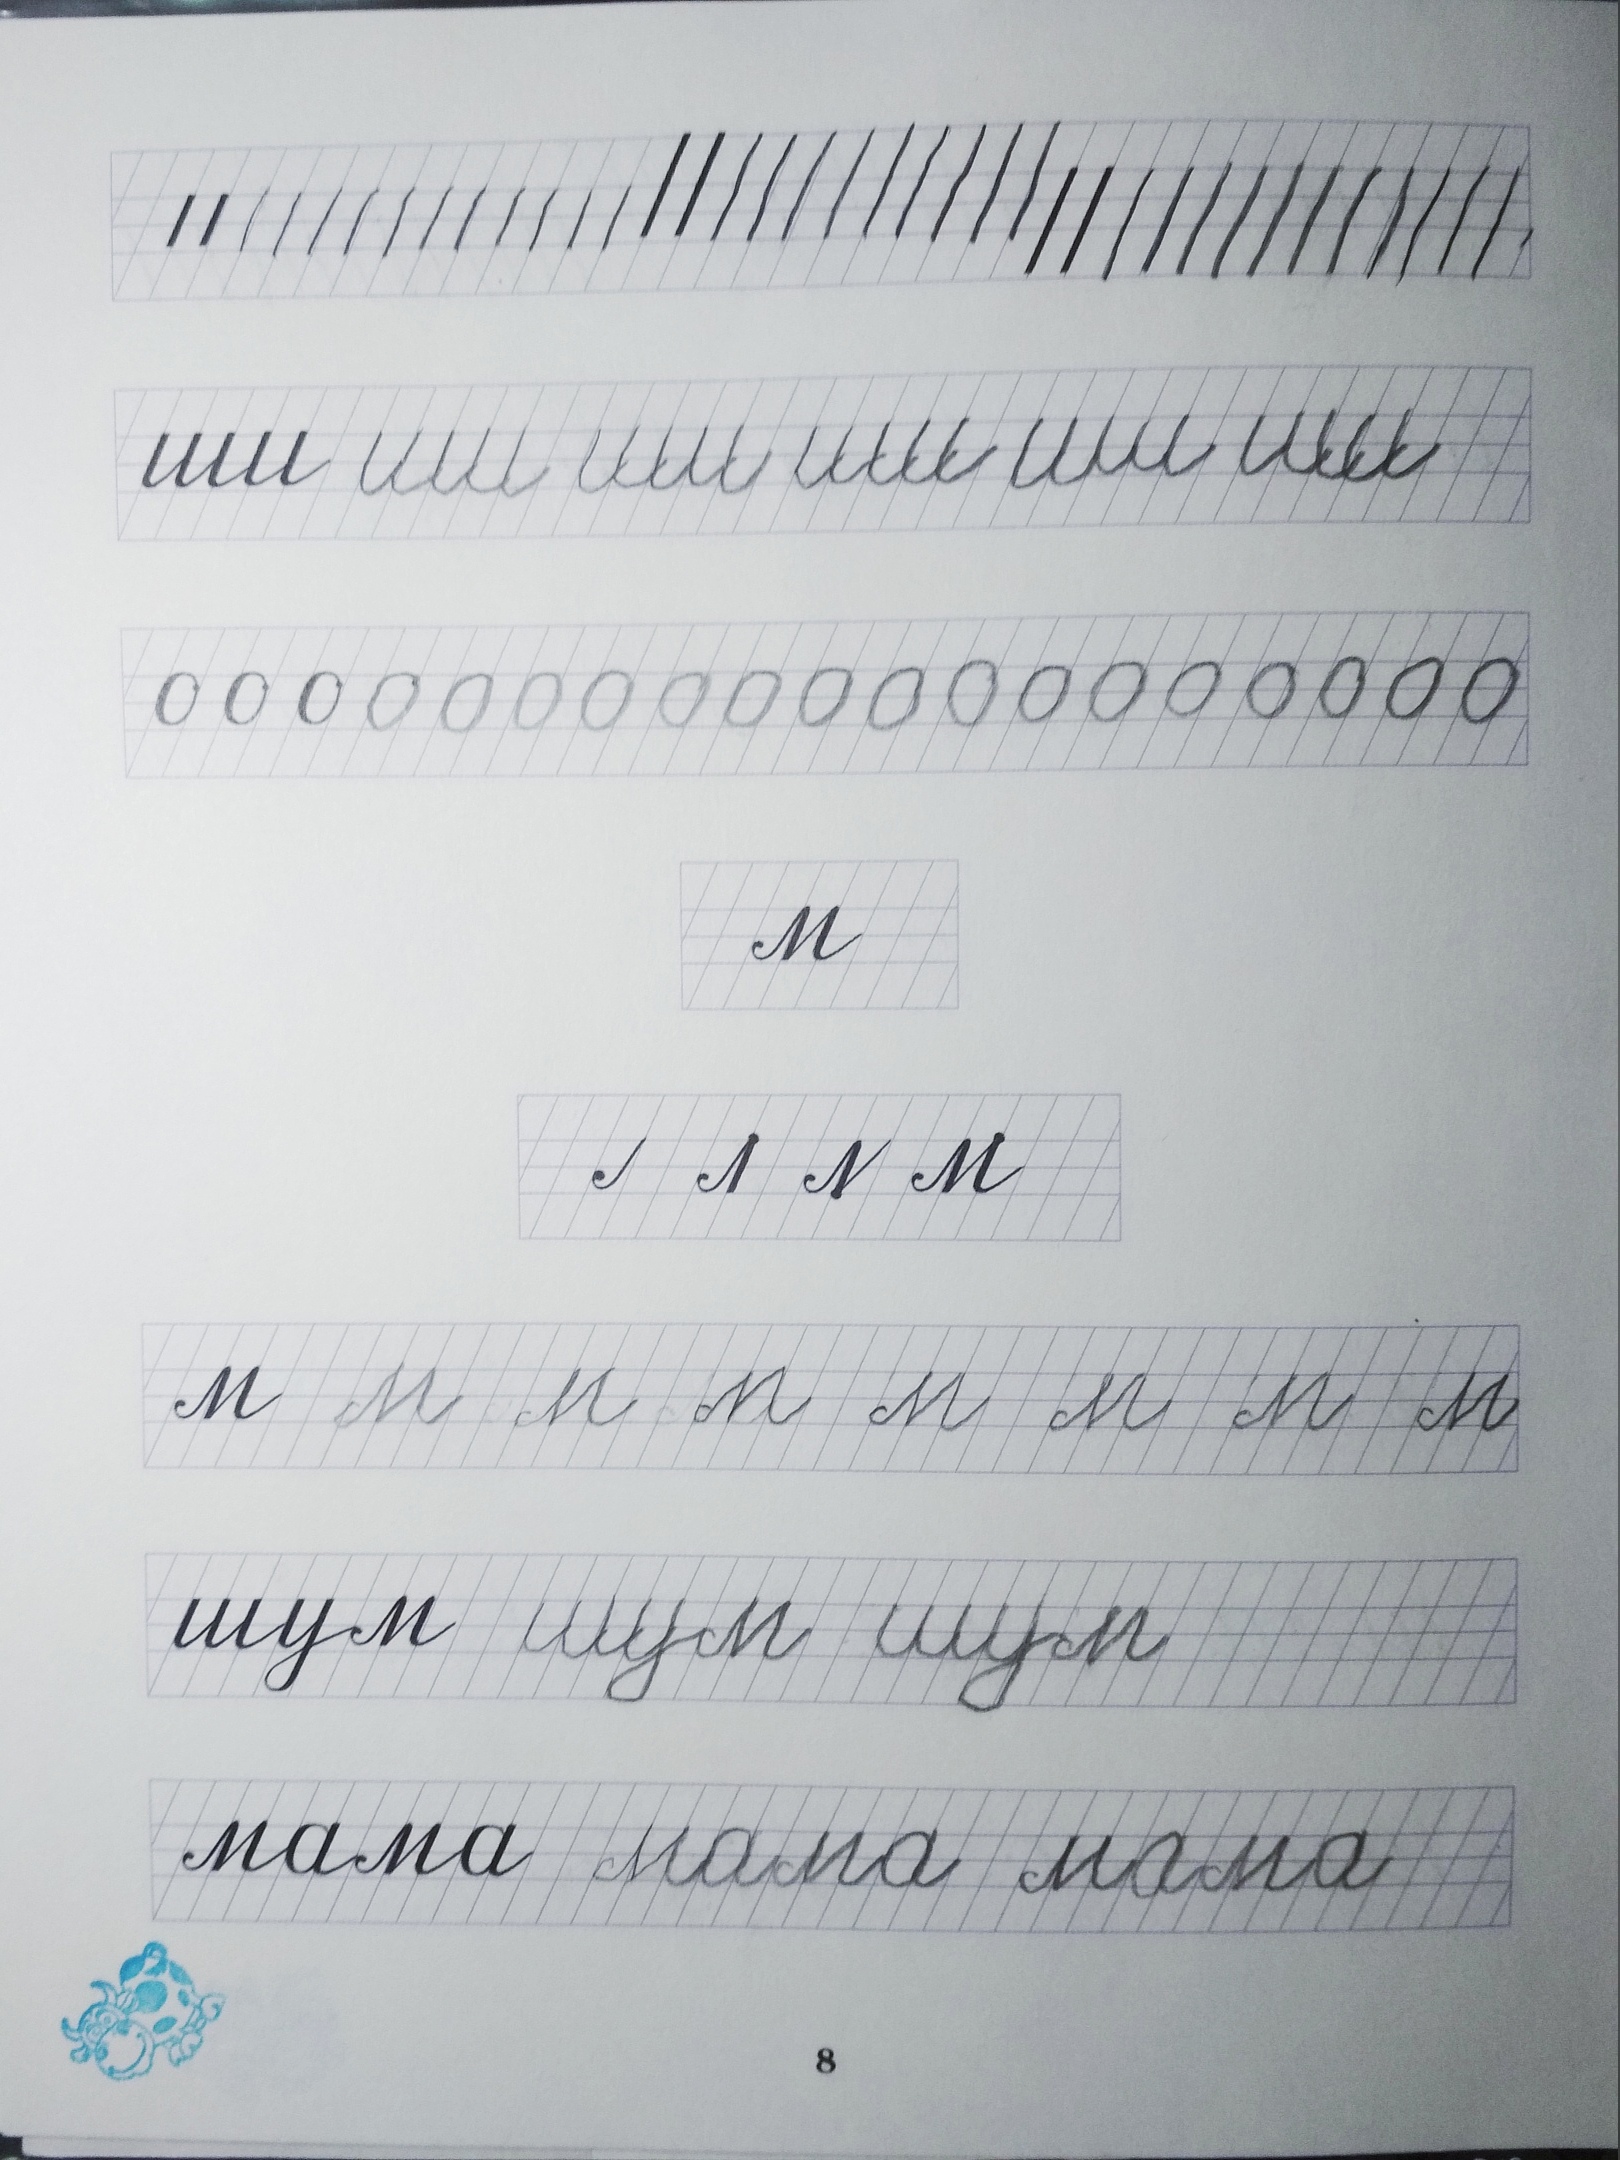 ши ши ши ши ши ши
о о о о о о о о о о о о о о о о о о о
м
м
м м м м м м м м
шум шум шум
мама мама мама
8